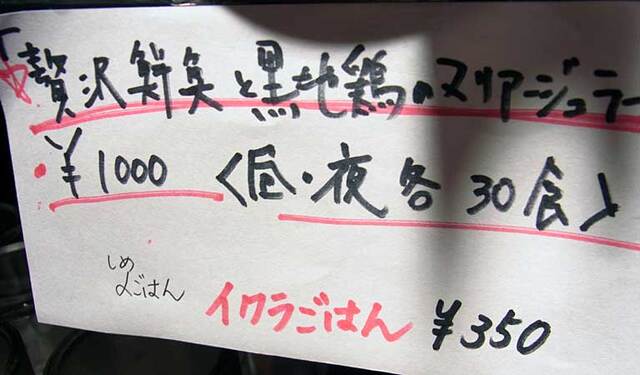 贅沢鮮魚と黒地鶏のマリアージュラー
¥1000 〈昼・夜各30食〉
しめ
〆ごはん
イクラごはん ¥350